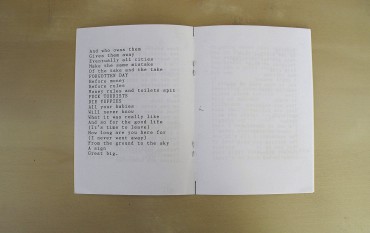 And who owns them
Gives them away
Eventually all cities
Make the same mistake
Of the take and the take
FORGOTTEN DAY
Before money
Before rules
Money rules and toilets spit
FUCK TOURISTS
DIE YUPPIES
All your babies
Will never know
What it was really like
And so for the good life
(It's time to leave)
How long are you here for
(I never went away)
From the ground to the sky
A sign
Great big.